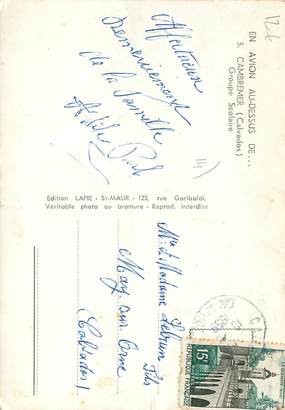 EN AVION AU-DESSUS DE...
5. CAMBREMER (Calvados)
Groupe Scolaire
Affectueux
remerciements
de la famille
Adèle Paul
14)
Edition LAPIE - St-MAUR - 125, rue Garibaldi.
Véritable photo au bromure - Reprod. interdite
Mr et Madame Lebrun
Fils
May sur Orne
(Calvados)
15F
REPUBLIQUE FRANÇAISE